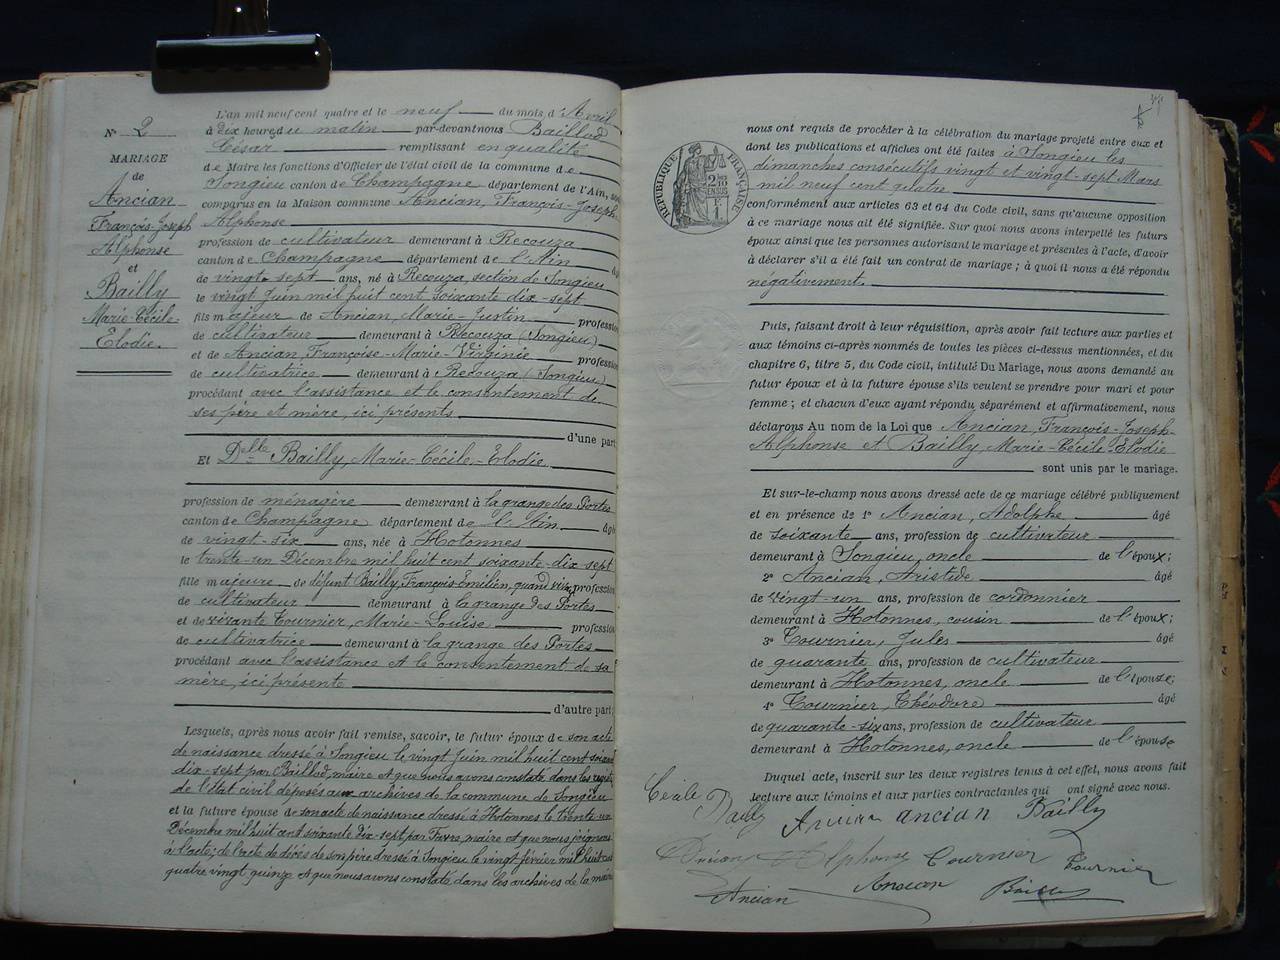 N° 2
MARIAGE
de
Ancian
François-Joseph
Alphonse
et
Bailly
Marie-Cécile-
Elodie.
L'an mil neuf cent quatre et le neuf du mois d'Avril
à dix heures du matin par-devant nous Baillod
César remplissant en qualité
de Maire les fonctions d'Officier de l'état civil de la commune de
Songieu canton de Champagne département de l'Ain,
comparus en la Maison commune Ancian, François-Joseph
Alphonse
profession de cultivateur demeurant à Recouza
canton de Champagne département de l'Ain
de vingt-sept ans, né à Recouza, section de Songieu
le vingt Juin mil huit cent soixante dix-sept
fils majeur de Ancian, Marie-Justin profession
de cultivateur demeurant à Recouza (Songieu)
et de Ancian, Françoise-Marie-Virginie profession
de cultivatrice demeurant à Recouza (Songieu)
procédant avec l'assistance et le consentement de
ses père et mère, ici présents
d'une part
Et Delle Bailly, Marie-Cécile-Elodie
profession de ménagère demeurant à la grange des Portes
canton de Champagne département de l'Ain âgée
de vingt-six ans, née à Hotonnes
le trente-un Décembre mil huit cent soixante-dix-sept
fille majeure de défunt Bailly, François-Emilien, quand vivait profession
de cultivateur demeurant à la grange des Portes
et de vivante Tournier, Marie-Louise profession
de cultivatrice demeurant à la grange des Portes
procédant avec l'assistance et le consentement de sa
mère, ici présente
d'autre part;
Lesquels, après nous avoir fait remise, savoir, le futur époux de son acte
de naissance dressé à Songieu le vingt Juin mil huit cent soixante
dix-sept par Baillod, maire et que nous avons constaté dans les registres
de l'état civil déposés aux archives de la commune de Songieu
et la future épouse de son acte de naissance dressé à Hotonnes le trente-un
Décembre mil huit cent soixante dix-sept par Favre, maire et que nous joignons
à l'acte; de l'acte de décès de son père dressé à Songieu le vingt février mil huit cent
quatre vingt quinze et que nous avons constaté dans les archives de la mairie
RÉPUBLIQUE FRANÇAISE
nous ont requis de procéder à la célébration du mariage projeté entre eux et
dont les publications et affiches ont été faites à Songieu les
dimanches consécutifs vingt et vingt-sept Mars
mil neuf cent quatre
conformément aux articles 63 et 64 du Code civil, sans qu'aucune opposition
à ce mariage nous ait été signifiée. Sur quoi nous avons interpellé les futurs
époux ainsi que les personnes autorisant le mariage et présentes à l'acte, d'avoir
à déclarer s'il a été fait un contrat de mariage ; à quoi il nous a été répondu
négativement.
Puis, faisant droit à leur réquisition, après avoir fait lecture aux parties et
aux témoins ci-après nommés de toutes les pièces ci-dessus mentionnées, et du
chapitre 6, titre 5, du Code civil, intitulé Du Mariage, nous avons demandé au
futur époux et à la future épouse s'ils veulent se prendre pour mari et pour
femme ; et chacun d'eux ayant répondu séparément et affirmativement, nous
déclarons Au nom de la Loi que Ancian, François-Joseph
Alphonse et Bailly, Marie-Cécile-Elodie
sont unis par le mariage.
Et sur-le-champ nous avons dressé acte de ce mariage célébré publiquement
et en présence de 1° Ancian, Adolphe âgé
de soixante ans, profession de cultivateur
demeurant à Songieu, oncle de l'époux;
2° Ancian, Aristide âgé
de vingt-un ans, profession de cordonnier
demeurant à Hotonnes, cousin de l'époux;
3° Tournier, Jules âgé
de quarante ans, profession de cultivateur
demeurant à Hotonnes, oncle de l'épouse;
4° Tournier, Théodore âgé
de quarante-six ans, profession de cultivateur
demeurant à Hotonnes, oncle de l'épouse
Duquel acte, inscrit sur les deux registres tenus à cet effet, nous avons fait
lecture aux témoins et aux parties contractantes qui ont signé avec nous.
Cécile Bailly Ancian ancian Bailly
Ancian Alphonse Tournier Tournier
Ancian Ancian